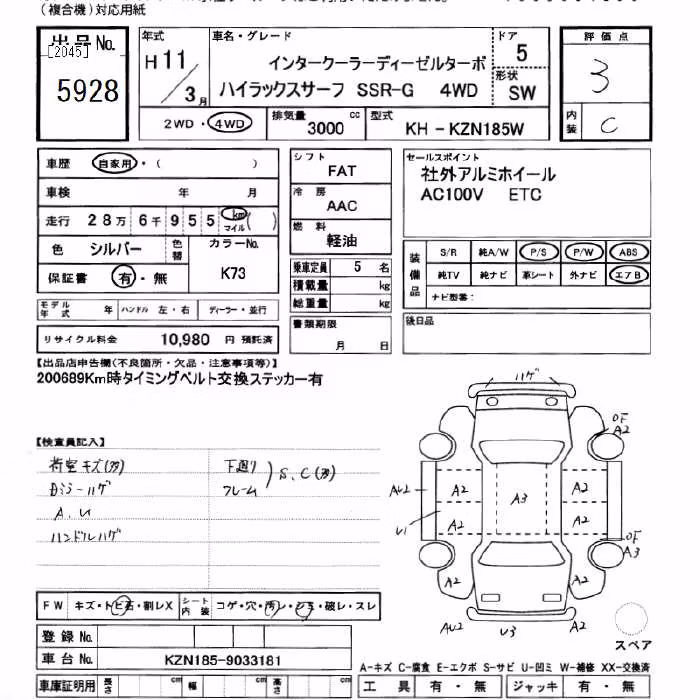 (複合機)対応用紙
出品No.
[2045]
5928
年式
H 11 / 3 月
車名・グレード
インタークーラーディーゼルターボ
ハイラックスサーフ SSR-G 4WD
ドア
5
形状
SW
評価点
3
内装
C
2WD・4WD
排気量 3000 cc
型式 KH-KZN185W
車歴 自家用・( )
車検 年 月
走行 28万6千955 km マイル ( )
色 シルバー
色替
カラーNo.
K73
保証書 有・無
モデル年式 年
ハンドル 左・右
ディーラー・並行
リサイクル料金 10,980 円 預託済
シフト
FAT
冷房
AAC
燃料
軽油
乗車定員 5 名
積載量 kg
総重量 kg
書類期限
月 日
セールスポイント
社外アルミホイール
AC100V ETC
装備品
S/R 純A/W P/S P/W ABS
純TV 純ナビ 革シート 外ナビ エアB
ナビ型番:
後日品
【出品店申告欄(不良箇所・欠品・注意事項等)】
200689Km時タイミングベルト交換ステッカー有
【検査員記入】
荷室キズ(多)
Bミラーハゲ
A.U
ハンドルハゲ
下廻り
フレーム
S、C(多)
ハゲ
OF
A2
AU2
A2
A3
A2
U1
A2
A2
OF
A3
A2
A2
AU2
U3
A2
スペア
FW キズ・トビ石・割レX
シート内装 コゲ・穴・汚レ・シミ・破レ・スレ
登録No.
車台No. KZN185-9033181
車庫証明用 長さ cm 幅 cm 高さ cm
A-キズ C-腐食 E-エクボ S-サビ U-凹ミ W-補修 XX-交換済
工具 有・無 ジャッキ 有・無